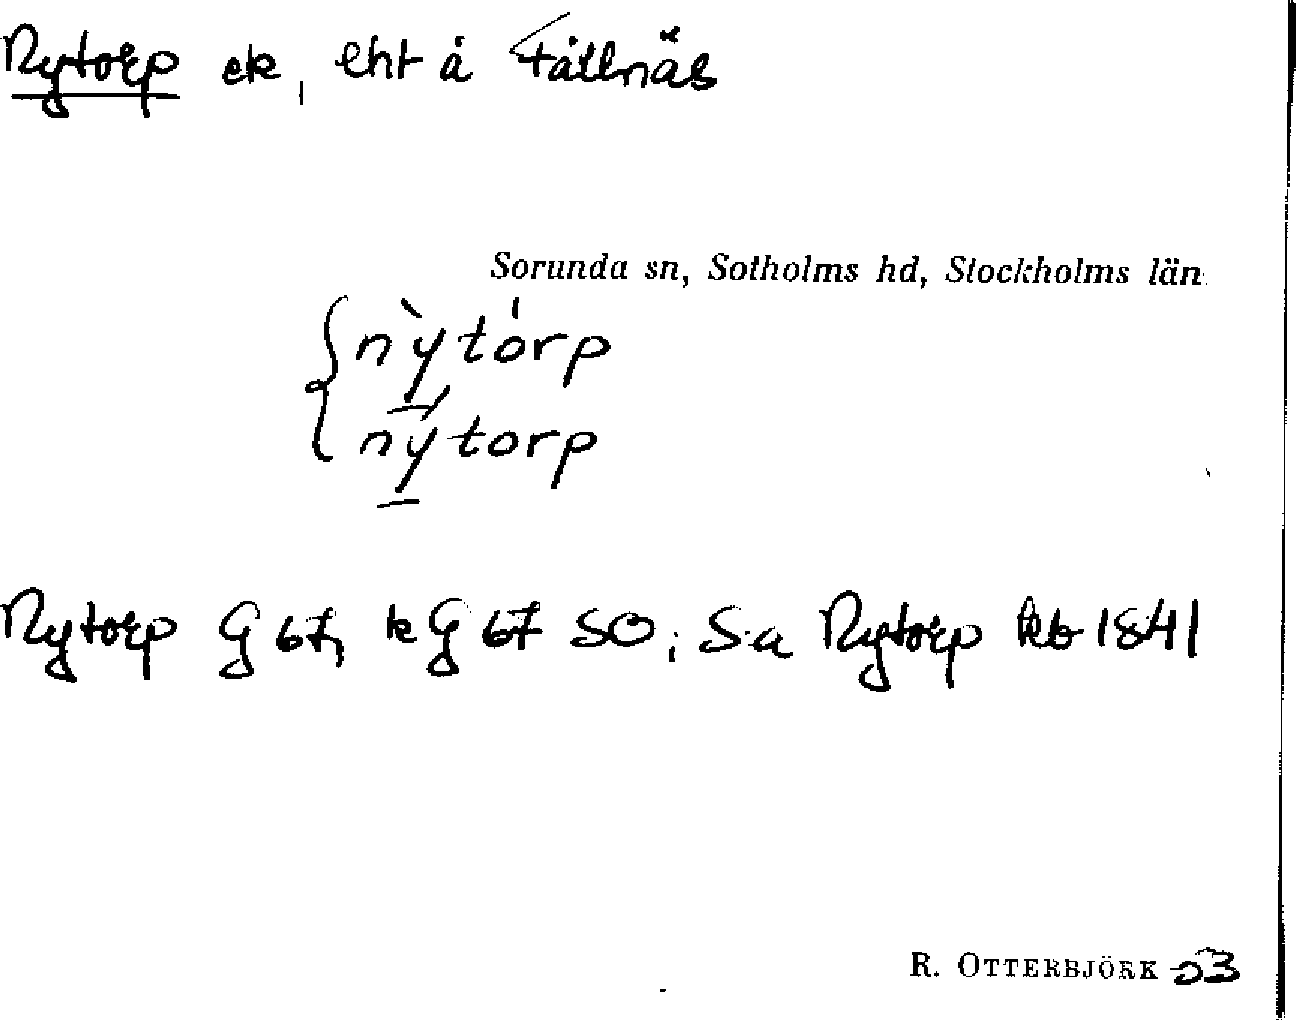 Nytorp ek, lht å Fållnäs
Sorunda sn, Sotholms hd, Stockholms län
nỳtórp
nýtorp
Nytorp G 67, k G 67 SO; S.a Nytorp kb 1841
R. OTTERBJÖRK 53